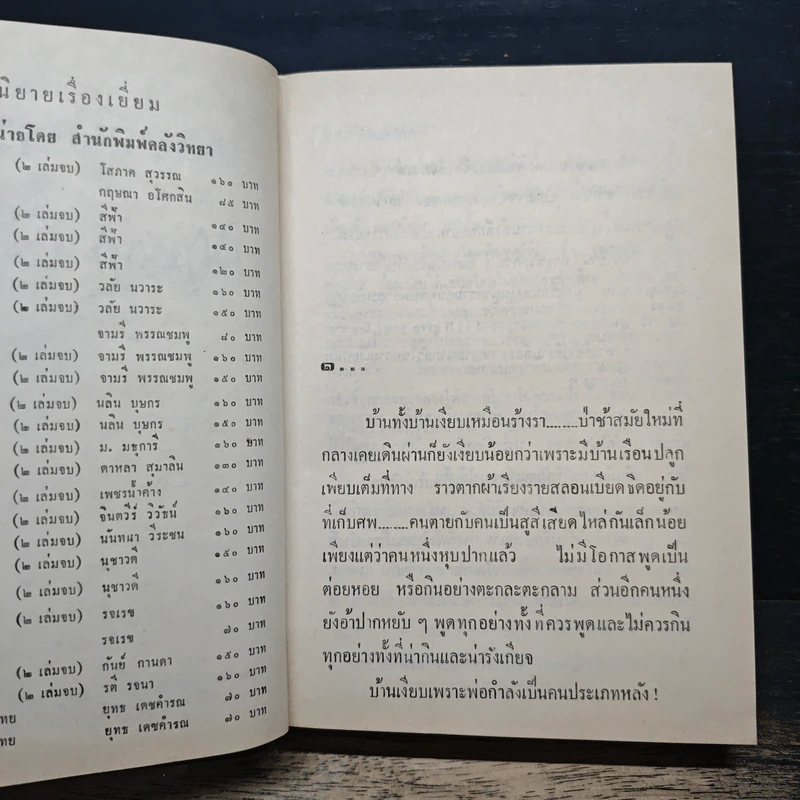 นิยายเรื่องเยี่ยม
น่ายโดย สำนักพิมพ์คลังวิทยา
(๒ เล่มจบ) โสภาค สุวรรณ ๑๖๐ บาท
กฤษณา อโศกสิน ๘๕ บาท
(๒ เล่มจบ) สีฟ้า ๑๔๐ บาท
(๒ เล่มจบ) สีฟ้า ๑๔๐ บาท
(๒ เล่มจบ) สีฟ้า ๑๒๐ บาท
(๒ เล่มจบ) วลัย นวาระ ๑๖๐ บาท
(๒ เล่มจบ) วลัย นวาระ ๑๕๐ บาท
จามรี พรรณชมพู ๘๐ บาท
(๒ เล่มจบ) จามรี พรรณชมพู ๑๖๐ บาท
(๒ เล่มจบ) จามรี พรรณชมพู ๑๕๐ บาท
(๒ เล่มจบ) นลิน บุษกร ๑๖๐ บาท
(๒ เล่มจบ) นลิน บุษกร ๑๕๐ บาท
(๒ เล่มจบ) ม. มธุการี ๑๖๐ บาท
(๒ เล่มจบ) ดาหลา สุมาลิน ๑๓๐ บาท
(๒ เล่มจบ) เพชรน้ำค้าง ๑๔๐ บาท
(๒ เล่มจบ) จินตวีร์ วิวัธน์ ๑๖๐ บาท
(๒ เล่มจบ) นันทนา วีระชน ๑๖๐ บาท
(๒ เล่มจบ) นุชาวดี ๑๕๐ บาท
(๒ เล่มจบ) นุชาวดี ๑๖๐ บาท
(๒ เล่มจบ) รจเรข ๑๖๐ บาท
รจเรข ๗๐ บาท
(๒ เล่มจบ) กันย์ กานดา ๑๕๐ บาท
(๒ เล่มจบ) รตี รจนา ๑๖๐ บาท
ไทย ยุทธ เดชคำรณ ๗๐ บาท
ไทย ยุทธ เดชคำรณ ๗๐ บาท
๑...
บ้านทั้งบ้านเงียบเหมือนร้างรา........ป่าช้าสมัยใหม่ที่
กลางเคยเดินผ่านก็ยังเงียบน้อยกว่าเพราะมีบ้านเรือนปลูก
เพียบเต็มที่ทาง ราวตากผ้าเรียงรายสลอนเบียดชิดอยู่กับ
ที่เก็บศพ........คนตายกับคนเป็นสูสีเสียดไหล่กันเล็กน้อย
เพียงแต่ว่าคนหนึ่งหุบปากแล้ว ไม่มีโอกาสพูดเป็น
ต่อยหอย หรือกินอย่างตะกละตะกลาม ส่วนอีกคนหนึ่ง
ยังอ้าปากหยับ ๆ พูดทุกอย่างทั้งที่ควรพูดและไม่ควรกิน
ทุกอย่างทั้งที่น่ากินและน่ารังเกียจ
บ้านเงียบเพราะพ่อกำลังเป็นคนประเภทหลัง !